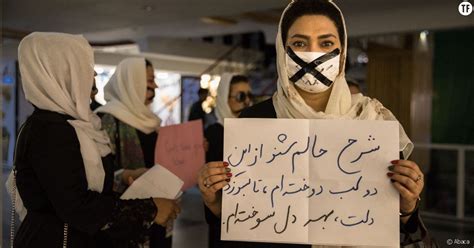 TF
شرح حالم شنو از این
دو لب دوخته‌ام، تا بسوزد
دلت، بهر دل سوخته‌ام.
© Abaca